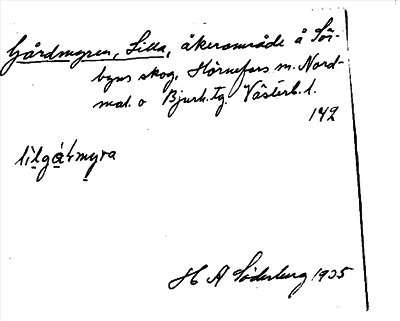 Gårdmyren, Lilla, åkerområde å Sör-
byns skog, Hörnefors m. Nord-
mal. o Bjurh. tg. Västerb. l.
142
lìlgármyra
H A Söderberg 1935